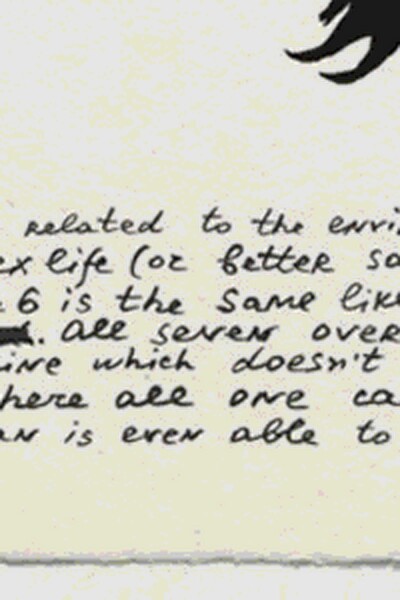 related to the envi
ex life (or better so
6 is the same like
. all seven over
ine which doesn't
here all one ca
an is even able to